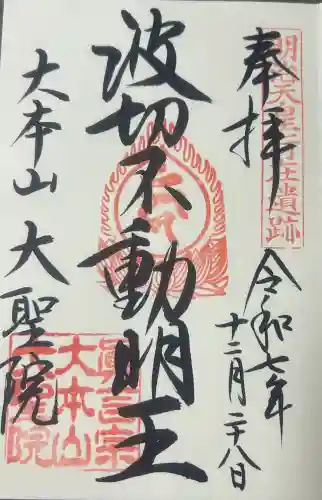 奉拝
明治天皇行在遺跡
令和七年
十二月二十八日
波切不動明王
大本山 大聖院
眞言宗
大本山